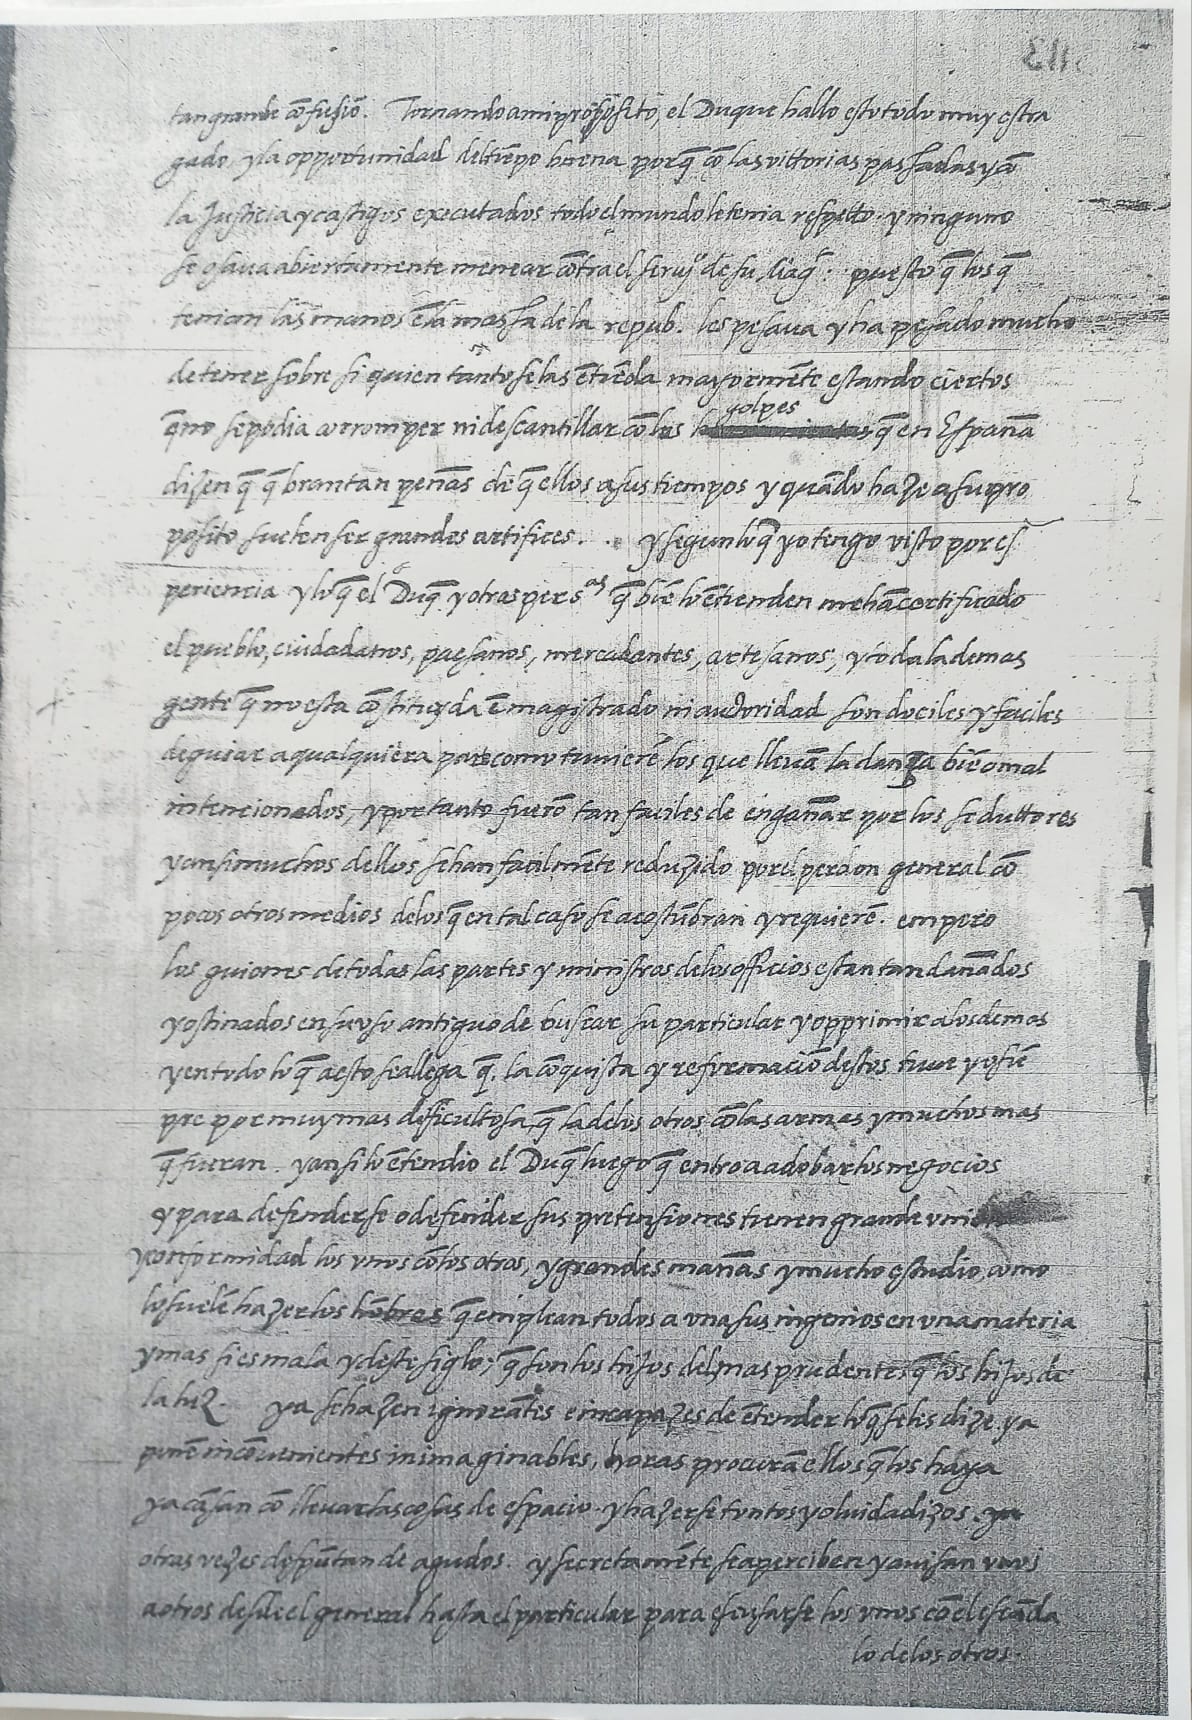 113
tan grande cōfusiō. Tornando a mi propósito, el Duque hallo esto todo muy estra
gado y la opportunidad del tiēpo buena porq̄ cō las vittorias passadas y cō
la Justicia y castigos executados todo el mundo le tenia respetto. y ninguno
se osaua abiertamente menear cōtra el seruj.º de su Mag.d: puesto q̄ los q̄
tenian las manos ē la massa de la repub. les pesaua y ha pesado mucho
de tener sobre si quien tanto se las ētiēda mayormēte estando ciertos
q̄ no se podia corromper ni descantillar cō los golpes q̄ en España
disen q̄ q̄brantan peñas de q̄ ellos a sus tiempos y quādo haze a su pro
posito suelen ser grandes artifices. . y segun lo q̄ yo tengo visto por es
periencia y lo q̄ el Duq̄ y otras persas q̄ biē lo ētienden me hā certificado
el pueblo, ciudadanos, paesanos, mercadantes, artesanos, y toda la demas
gente q̄ no esta cōstituyda ē magistrado ni autoridad son dociles y faciles
de guiar a qualquiera parte como tuuierē los que lleuā la dança biē o mal
intencionados, y por tanto fuerō tan faciles de engañar por los seduttores
y ansi muchos dellos se han facilmēte reduzido por el perdon general cō
pocos otros medios de los q̄ en tal caso se acostūbran y requierē. empero
los guiones de todas las partes y ministros de los officios estan tan dañados
y ostinados en su vso antiguo de buscar su particular y opprimir a los demas
y en todo lo q̄ a esto se allega q̄. la cōquista y reformaciō destos tuue yo siē
pre por muy mas difficultosa, q̄ la de los otros cō las armas y muchos mas
q̄ fueran. y ansi lo ētendio el Duq̄ luego q̄ entro a adobar los negocios
y para defenderse o defender sus pretensiones tienen grande vniō
y conformidad los vnos cō los otros, y grandes mañas y mucho estudio, como
lo suelē hazer los hōbres q̄ emplean todos a vna sus ingenios en vna materia
y mas si es mala y deste siglo; q̄ son los hijos del mas prudentes q̄ los hijos de
la luz. ya se hazen ignorātes e incapazes de ētender lo q̄ se les dize. ya
ponē incōuenientes inimaginables, horas procurā ellos q̄ los haya
ya cāsan cō lleuar las cosas de espacio. y hazerse tontos y oluidadizos. ya
otras vezes dispūtan de agudos. y secretamēte se aperciben y auisan vnos
a otros desde el general hasta el particular para escusarse los vnos cō el escāda
lo de los otros.